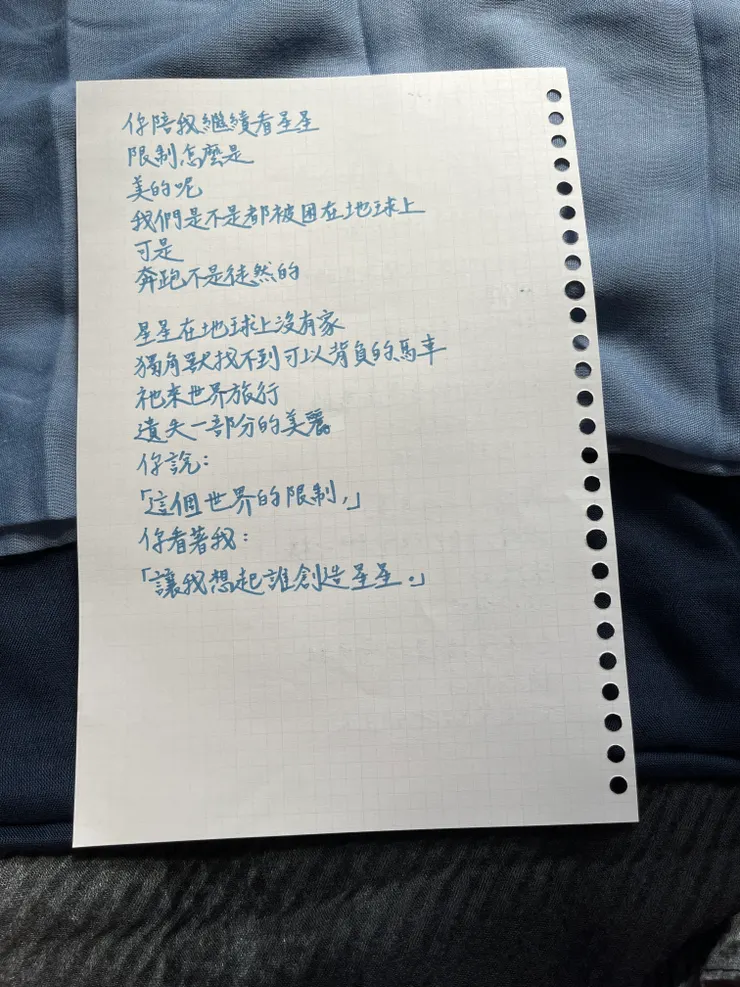 你陪我繼續看星星
限制怎麼是
美的呢
我們是不是都被困在地球上
可是
奔跑不是徒然的
星星在地球上沒有家
獨角獸找不到可以背負的馬車
祂來世界旅行
遺失一部分的美麗
你說：
「這個世界的限制，」
你看著我：
「讓我想起誰創造星星。」